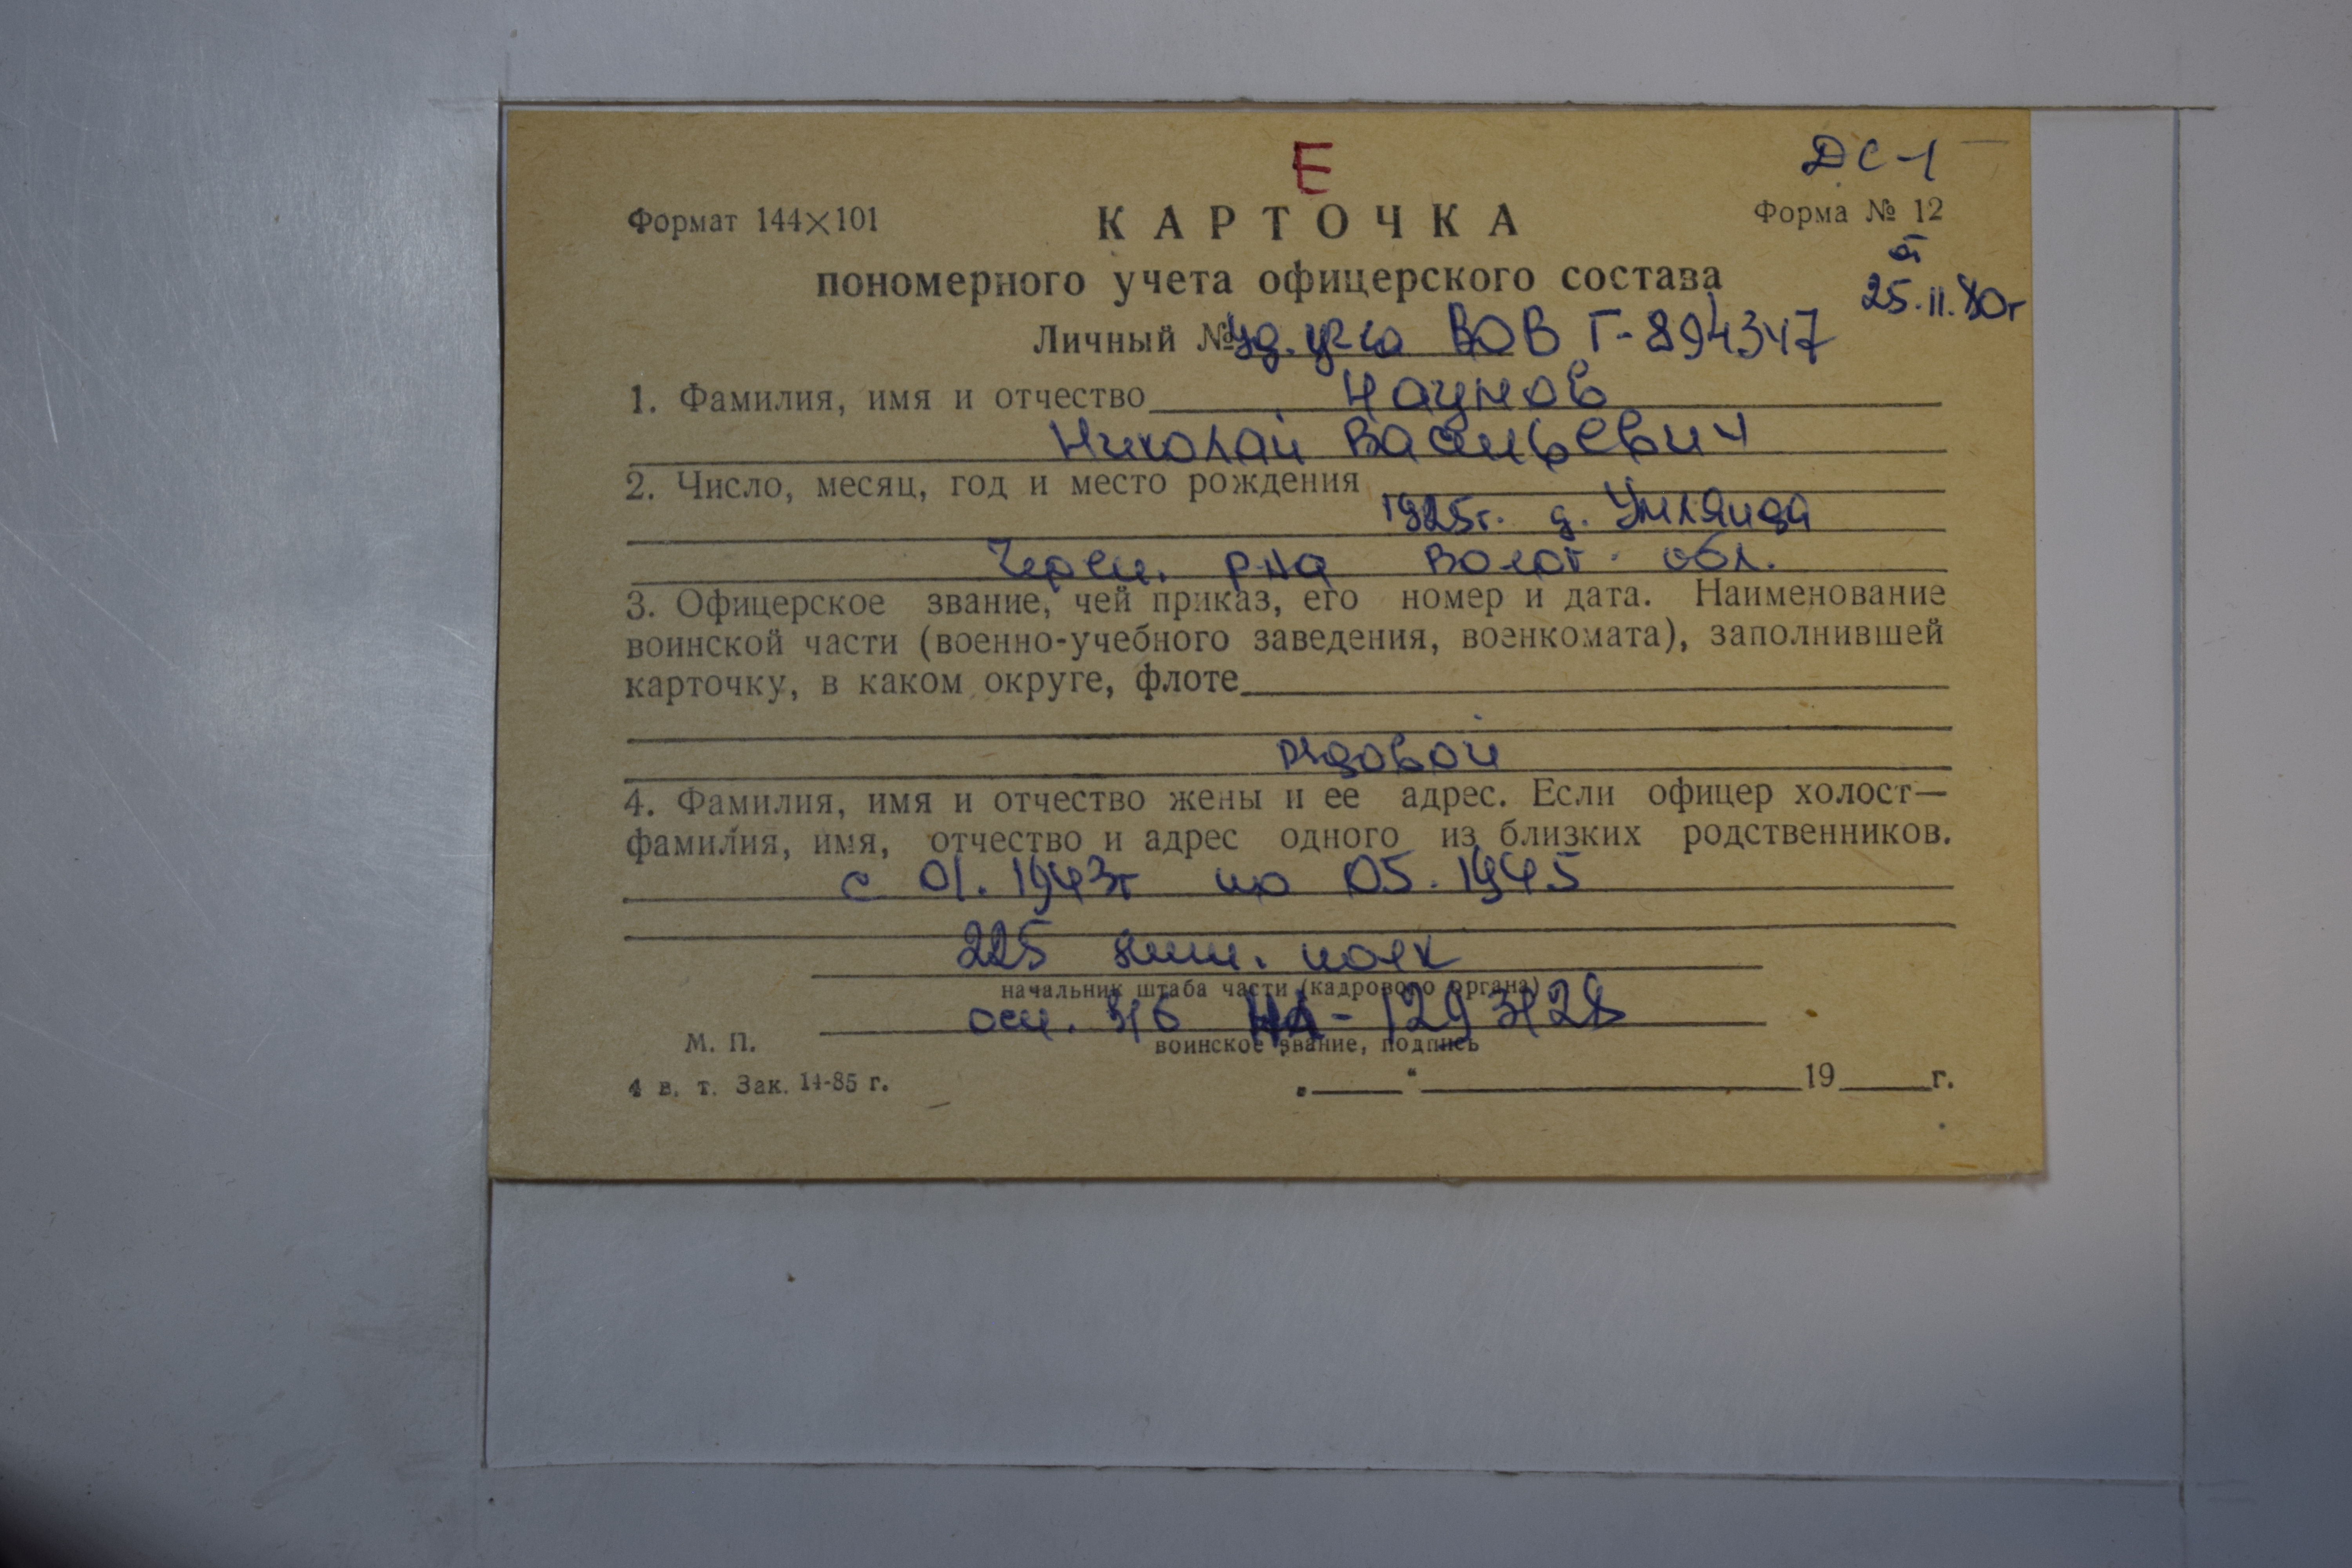 Е
ДС-1
Формат 144×101
КАРТОЧКА
Форма № 12
от
25.11.80г
пономерного учета офицерского состава
Личный № Уд. уч-ка ВОВ Г-894347
1. Фамилия, имя и отчество Наумов
Николай Васильевич
2. Число, месяц, год и место рождения
1925г. д.
Череп. р-на Волог. обл.
3. Офицерское звание, чей приказ, его номер и дата. Наименование
воинской части (военно-учебного заведения, военкомата), заполнившей
карточку, в каком округе, флоте
рядовой
4. Фамилия, имя и отчество жены и ее адрес. Если офицер холост—
фамилия, имя, отчество и адрес одного из близких родственников.
с 01.1943г по 05.1945
225 полк
начальник штаба части (кадрового органа)
осн. в/б
М. П.
воинское звание, подпись
4 в. т. Зак. 14-85 г.
„ “ 19 г.